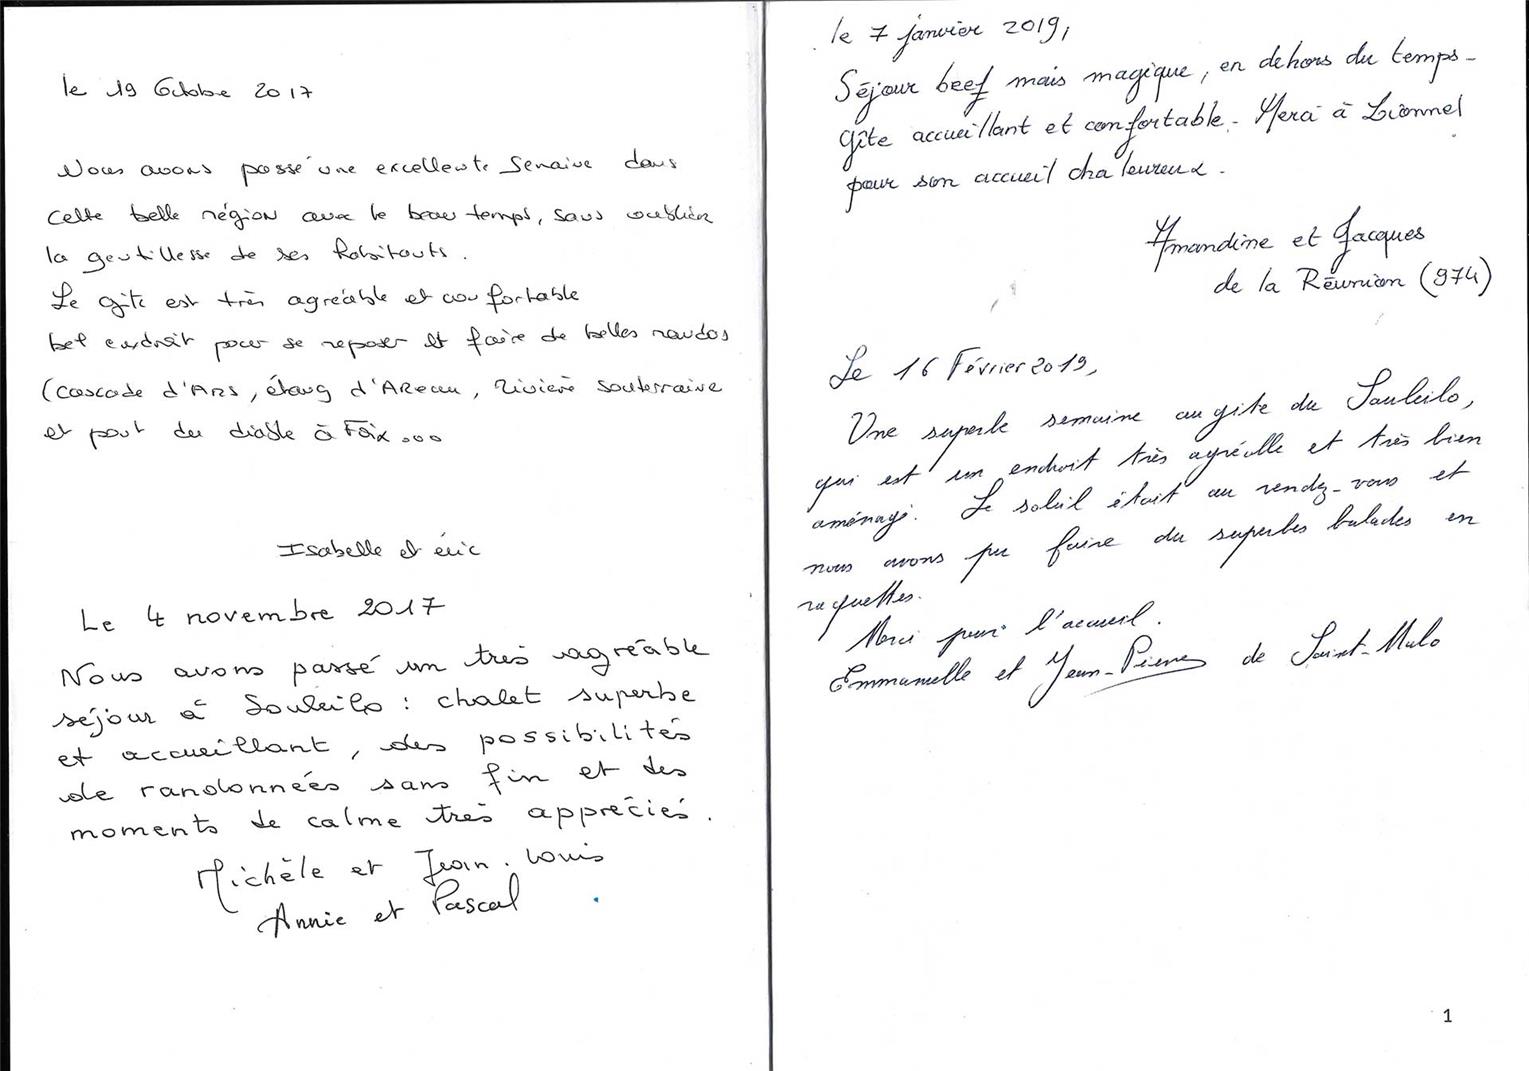 le 19 Octobre 2017
Nous avons passé une excellente semaine dans
cette belle région avec le beau temps, sans oublier
la gentillesse de ses habitants.
Le gite est très agréable et confortable
bel endroit pour se reposer et faire de belles randos
(cascade d'Ars, étang d'Areau, rivière souterraine
et pont du diable à Foix...
Isabelle et éric
Le 4 novembre 2017
Nous avons passé un très agréable
séjour à Souleilo : chalet superbe
et accueillant, des possibilités
de randonnées sans fin et des
moments de calme très appréciés.
Michèle et Jean-Louis
Annie et Pascal
le 7 janvier 2019,
Séjour beef mais magique, en dehors du temps -
gîte accueillant et confortable - Merci à Lionnel
pour son accueil chaleureux.
Amandine et Jacques
de la Réunion (974)
Le 16 Février 2019,
Une superbe semaine au gite du Souleilo,
qui est un endroit très agréable et très bien
aménagé. Le soleil était au rendez-vous et
nous avons pu faire du superbes balades en
raquettes.
Merci pour l'accueil.
Emmanuelle et Jean-Pierre de Saint-Malo
1